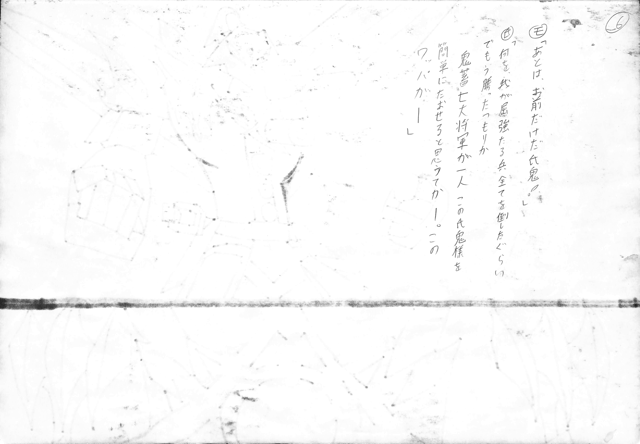 6
モ「あとは、お前だけだ氏鬼!」
氏「何を、我が屈強たる兵全てを倒したぐらい
でもう勝ったつもりか
鬼蓄七大将軍が一人 この氏鬼様を
簡単にたおせると思うてかー。この
ワ、バカー」